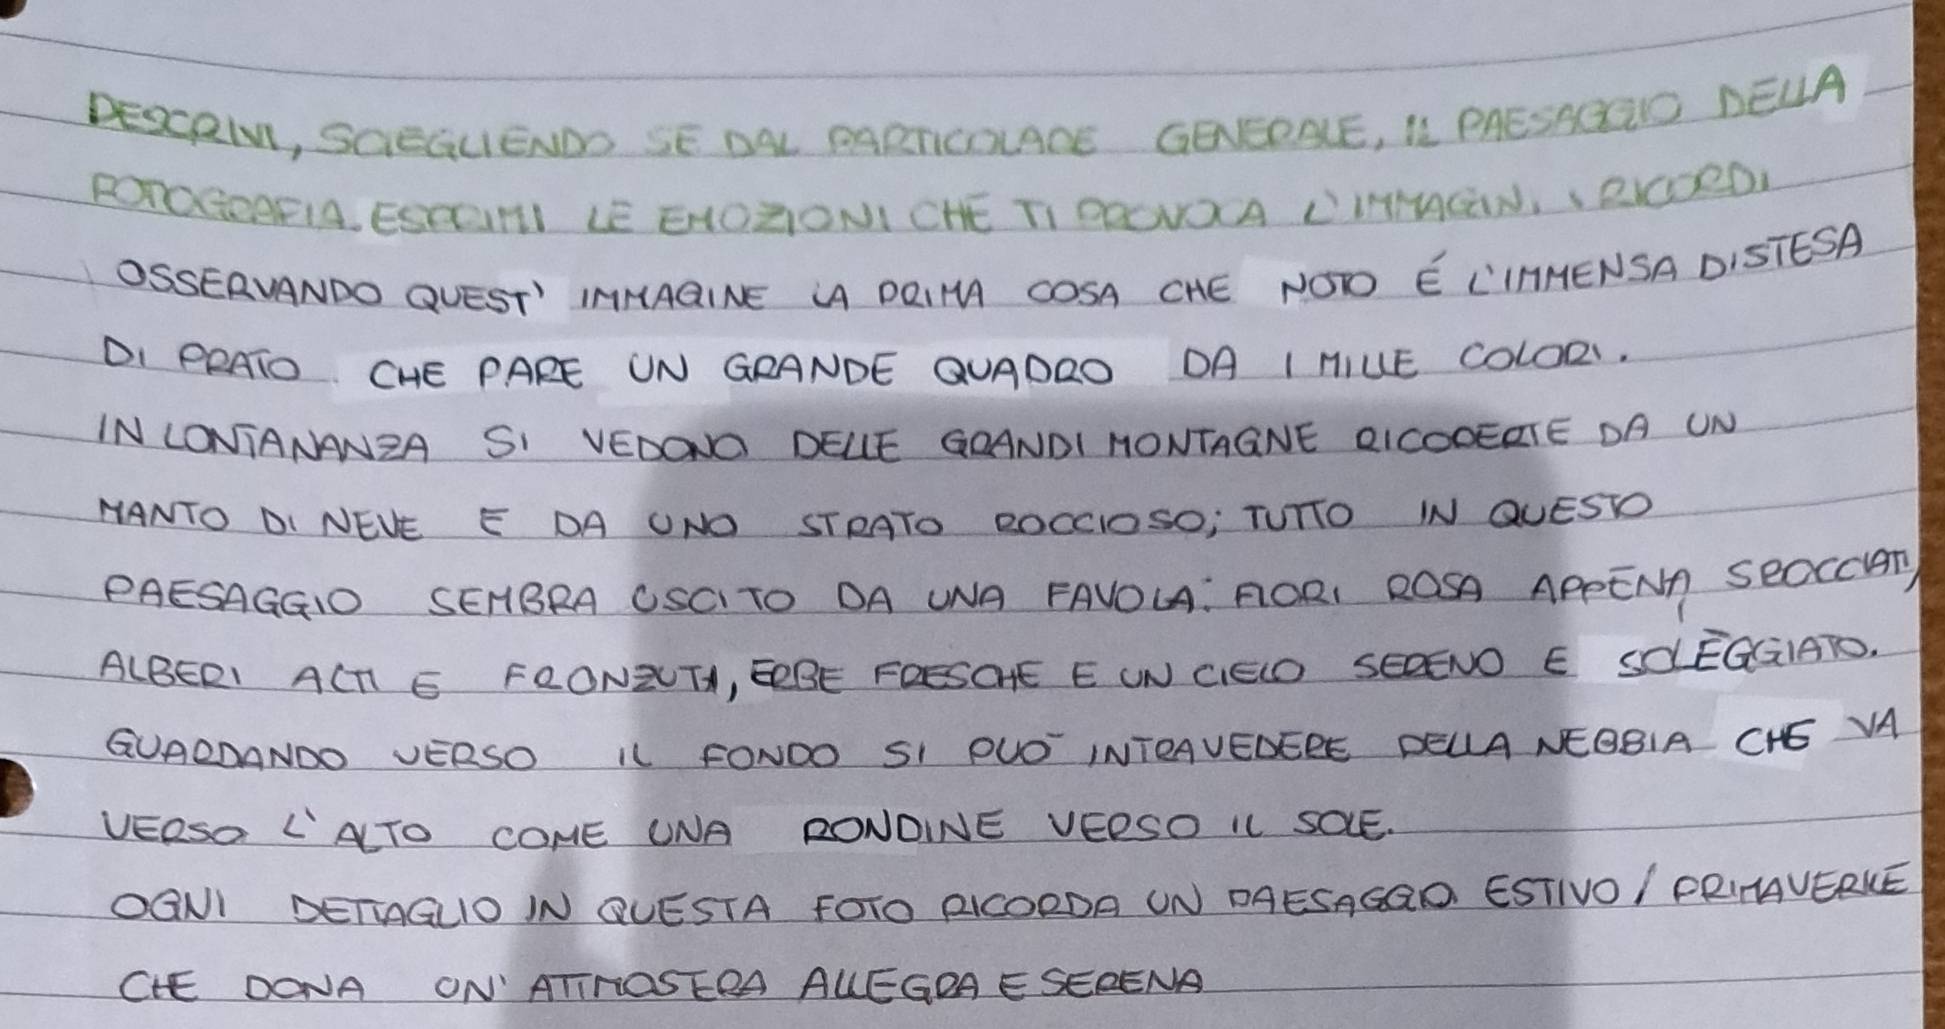 DESCRIVI, SCIEGLIENDO SE DAL PARTICOLARE GENERALE, IL PAESAGGIO DELLA
FOTOGRAFIA. ESPRIMI LE EMOZIONI CHE TI PROVOCA L'IMMAGIN. I RICORDI
OSSERVANDO QUEST' IMMAGINE LA PRIMA COSA CHE NOTO É L'IMMENSA DISTESA
DI PRATO CHE PARE UN GRANDE QUADRO DA I MILLE COLORI.
IN LONTANANZA SI VEDONO DELLE GRANDI MONTAGNE RICOPERTE DA UN
MANTO DI NEVE E DA UNO STRATO ROCCIOSO; TUTTO IN QUESTO
PAESAGGIO SEMBRA USCITO DA UNA FAVOLA: FIORI ROSA APPENA SBOCCIATI,
ALBERI ALTI E FRONZUTI, ERBE FRESCHE E UN CIELO SERENO E SOLEGGIATO.
GUARDANDO VERSO IL FONDO SI PUÒ INTRAVEDERE DELLA NEBBIA CHE VA
VERSO L'ALTO COME UNA RONDINE VERSO IL SOLE.
OGNI DETTAGLIO IN QUESTA FOTO RICORDA UN PAESAGGIO ESTIVO / PRIMAVERILE
CHE DONA UN' ATTMOSFERA ALLEGRA E SERENA